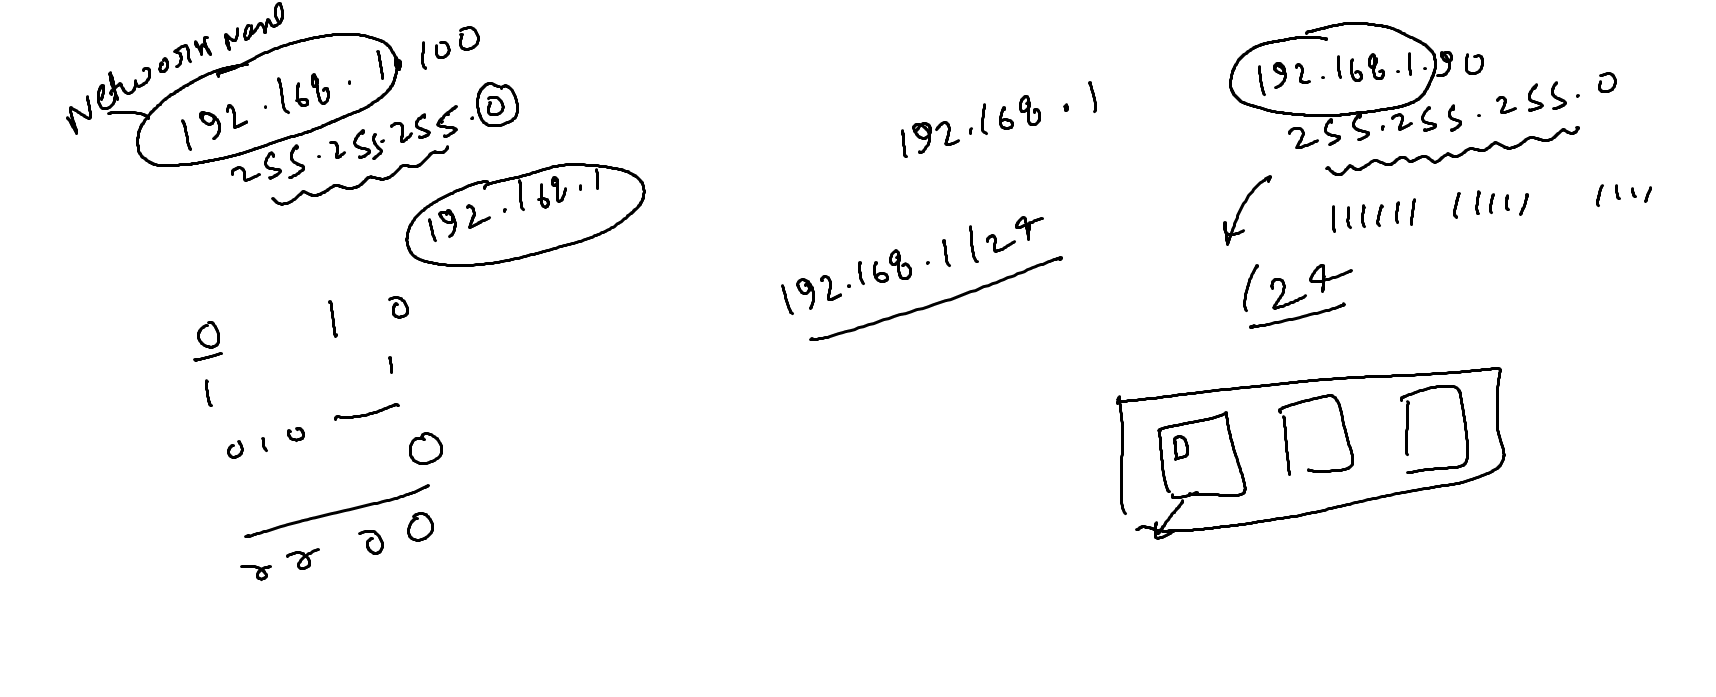 Network Name
192.168.1.100
255.255.255.0
192.168.1
0 1 0
1 1
0 1 0
0
0 0
192.168.1
192.168.1/24
192.168.1.90
255.255.255.0
111111 11111 1111
/24
D